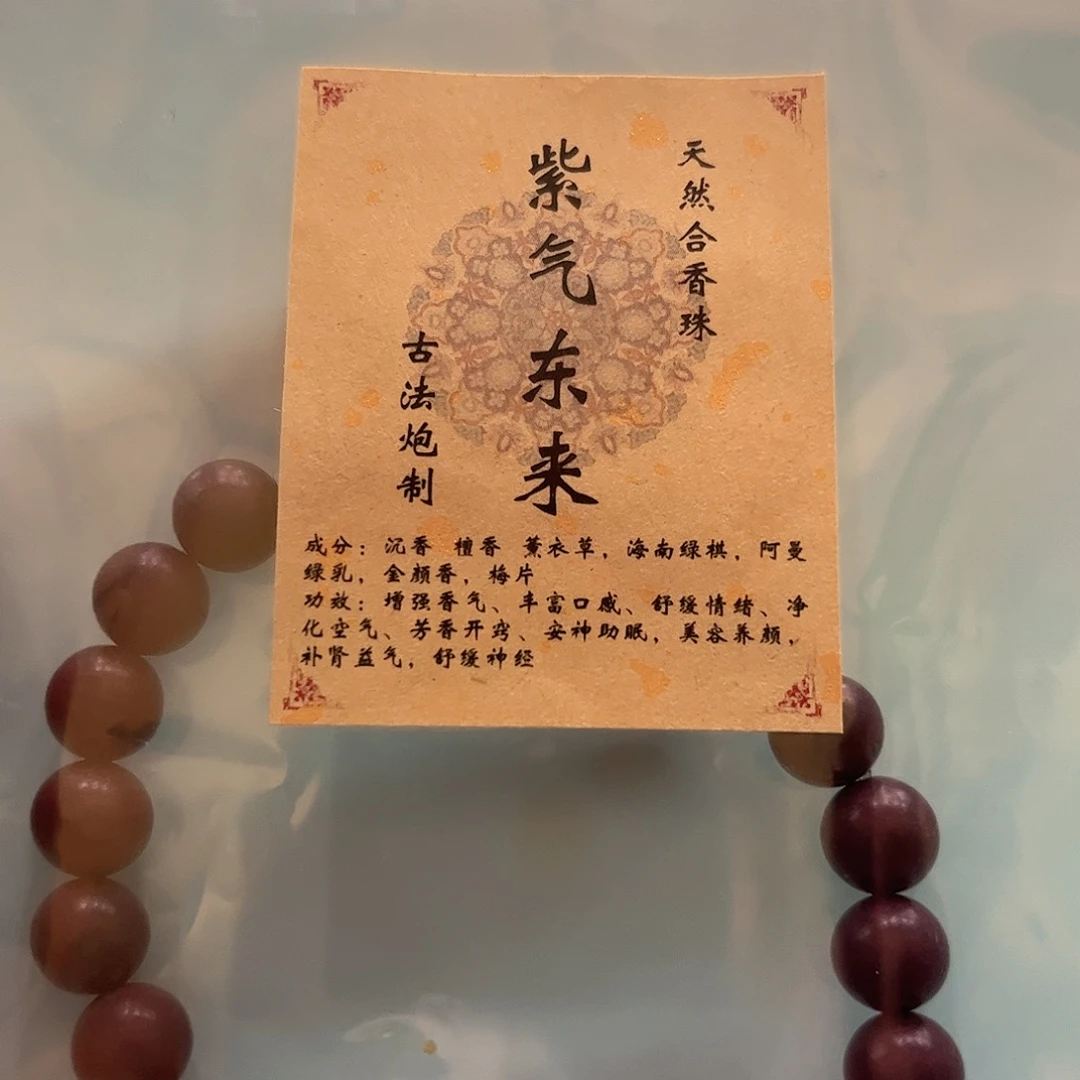 天然合香珠
紫气东来
古法炮制
成分：沉香 檀香 薰衣草，海南绿棋，阿曼
绿乳，金颜香，梅片
功效：增强香气、丰富口感、舒缓情绪、净
化空气、芳香开窍、安神助眠，美容养颜，
补肾益气，舒缓神经